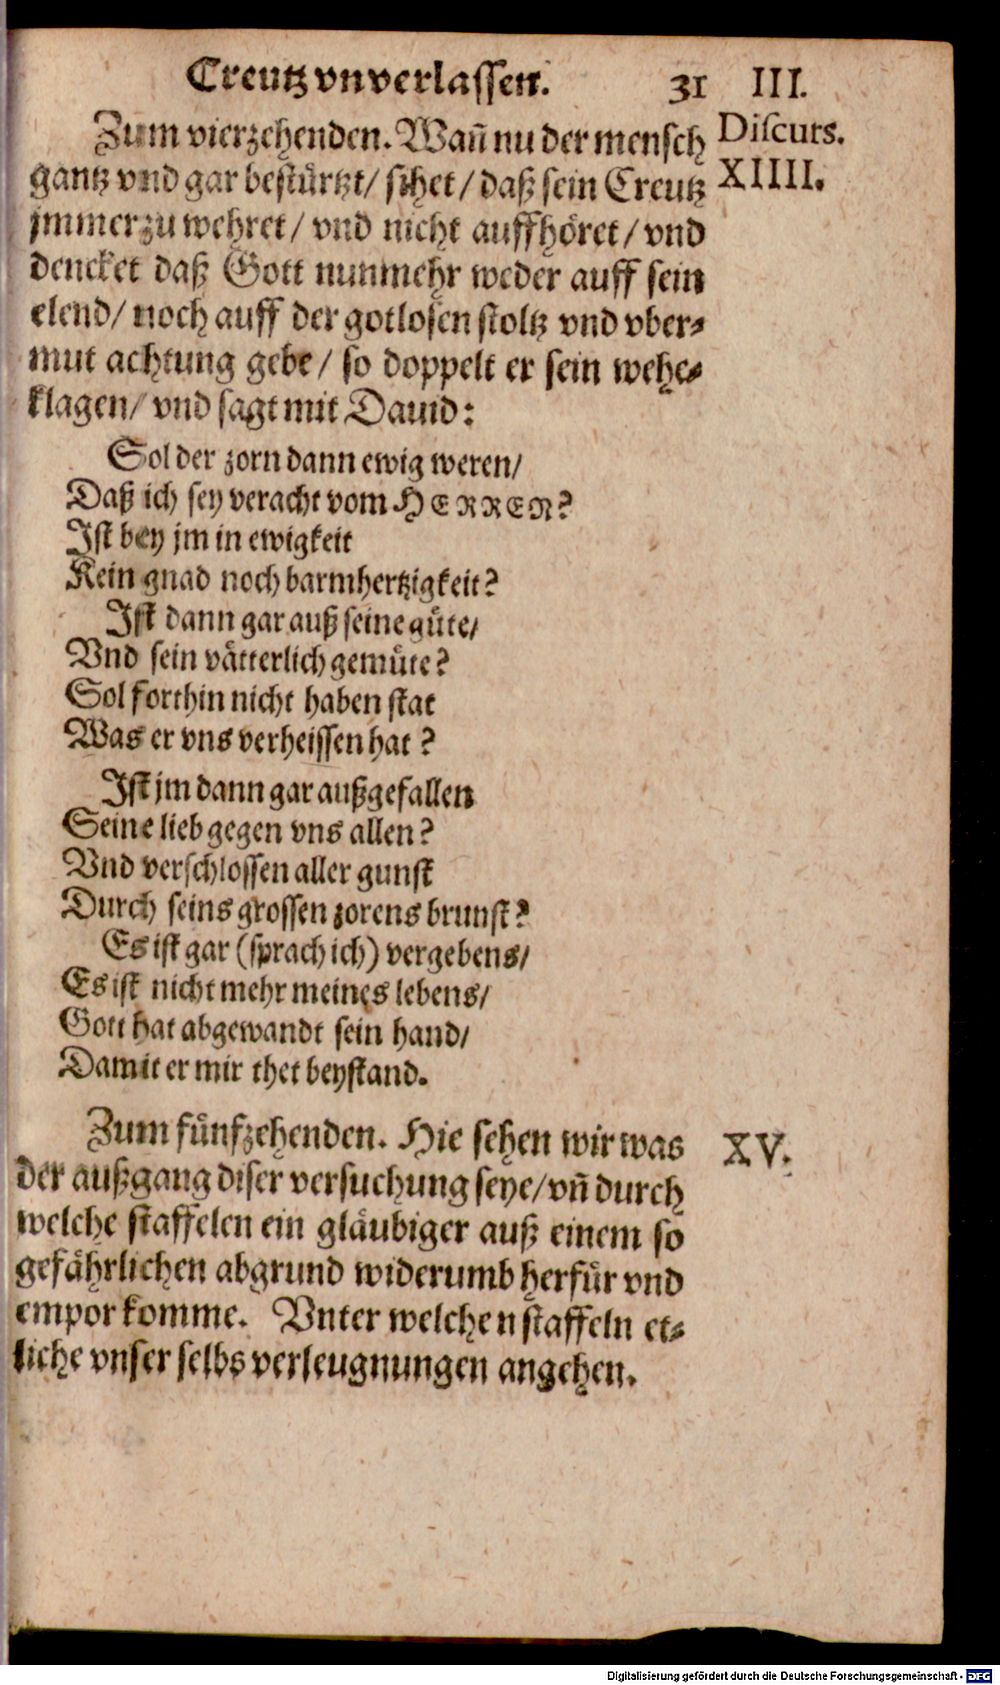 Creutz vnverlassen. 31 III.
Discurs.
XIIII.
Zum vierzehenden. Wañ nu der mensch
gantz vnd gar bestürtzt/ sihet/ daß sein Creutz
jmmerzu wehret/ vnd nicht auffhöret/ vnd
dencket daß Gott nunmehr weder auff sein
elend/ noch auff der gotlosen stoltz vnd vber⸗
mut achtung gebe/ so doppelt er sein wehe⸗
klagen/ vnd sagt mit Dauid:
Sol der zorn dann ewig weren/
Daß ich sey veracht vom HERREN?
Ist bey jm in ewigkeit
Kein gnad noch barmhertzigkeit?
Ist dann gar auß seine güte/
Vnd sein vätterlich gemüte?
Sol forthin nicht haben stat
Was er vns verheissen hat?
Ist jm dann gar außgefallen
Seine lieb gegen vns allen?
Vnd verschlossen aller gunst
Durch seins grossen zorens brunst?
Es ist gar (sprach ich) vergebens/
Es ist nicht mehr meines lebens/
Gott hat abgewandt sein hand/
Damit er mir thet beystand.
XV.
Zum fünfzehenden. Hie sehen wir was
der außgang diser versuchung seye/ vñ durch
welche staffelen ein gläubiger auß einem so
gefährlichen abgrund widerumb herfür vnd
empor komme. Vnter welchen staffeln et⸗
liche vnser selbs verleugnungen angehen.
Digitalisierung gefördert durch die Deutsche Forschungsgemeinschaft - DFG